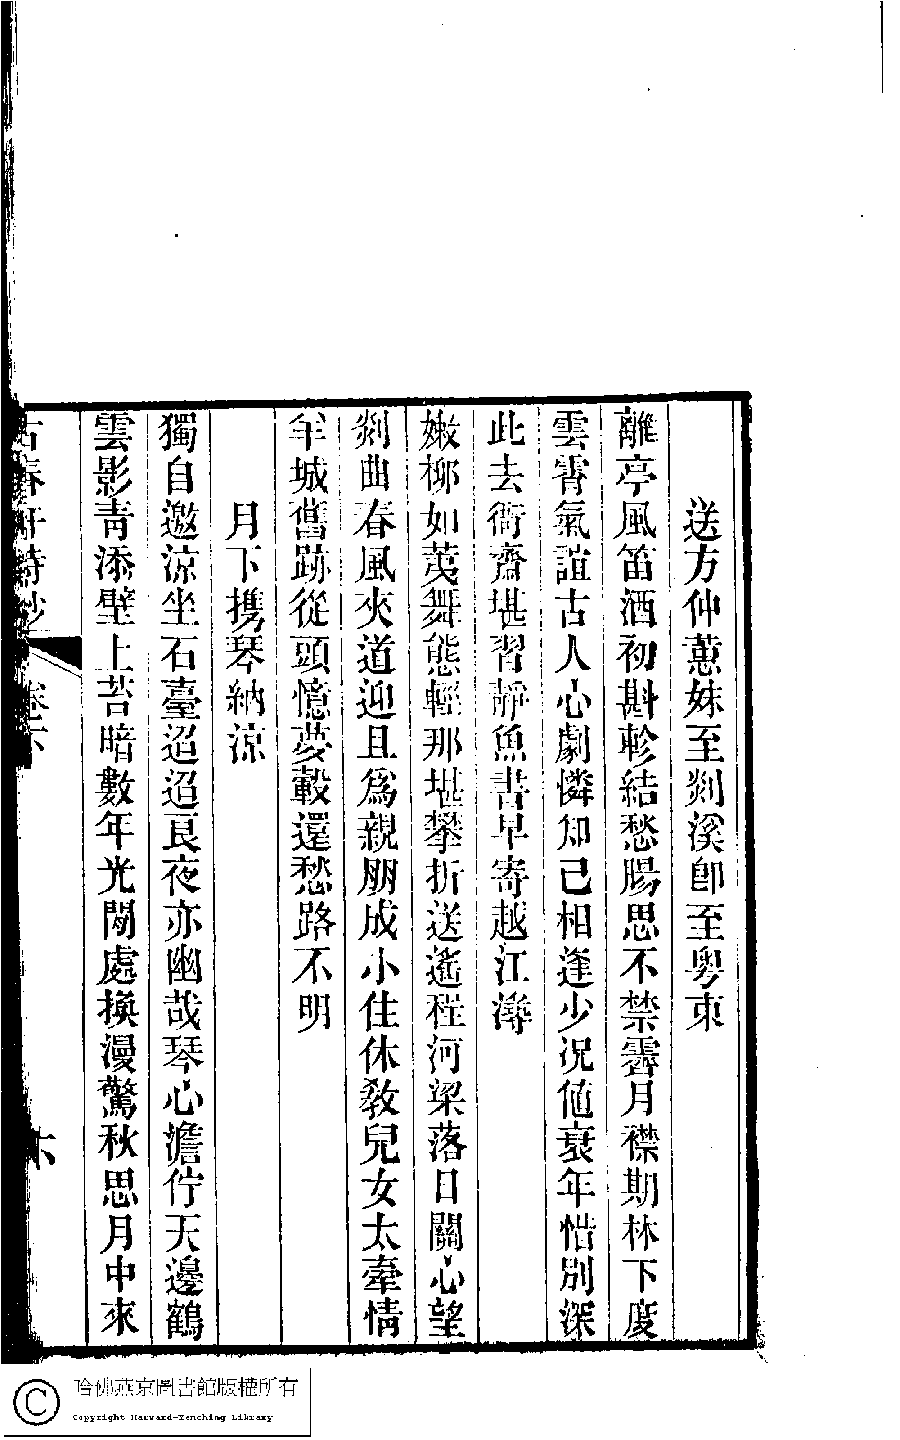 送方仲蕙妹至剡溪卽至粤東
離亭風笛酒初斟軫結愁腸思不禁霽月襟期林下度
雲霄氣誼古人心劇憐知己相逢少况値衰年惜別深
此去衙齋堪習靜魚書早寄越江潯
嫩柳如荑舞態輕那堪攀折送遙程河梁落日關心望
剡曲春風夾道迎且爲親朋成小住休敎兒女太牽情
羊城舊跡從頭憶夢轂還愁路不明
月下攜琴納涼
獨自邀涼坐石臺迢迢良夜亦幽哉琴心澹佇天邊鶴
雲影靑添壁上苔暗數年光閒處換漫驚秋思月中來
古春軒詩鈔
卷六
六
哈佛燕京圖書館版權所有
Copyright Harvard-Yenching Library